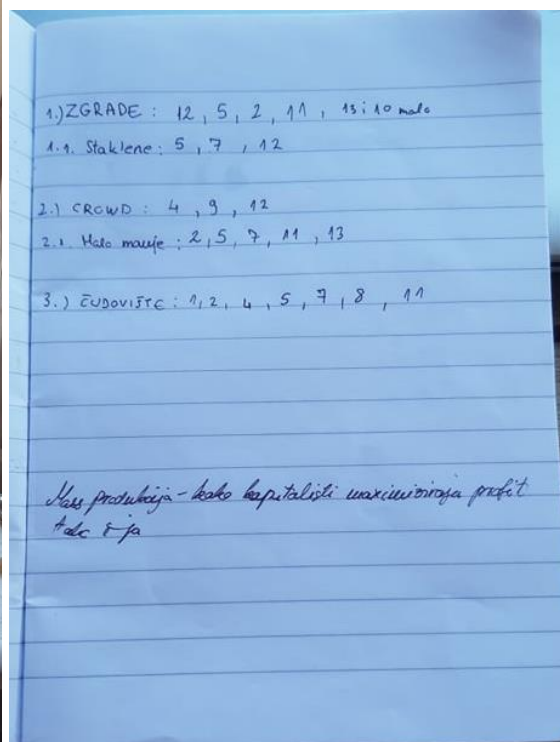 1.) ZGRADE : 12, 5, 2, 11, 13 i 10 malo
1.1. Staklene : 5, 7, 12
2.) CROWD : 4, 9, 12
2.1. Malo manje : 2, 5, 7, 11, 13
3.) ČUDOVIŠTE : 1, 2, 4, 5, 7, 8, 11
Mass produkcija - kako kapitalisti maximiziraju profit
tako i ja